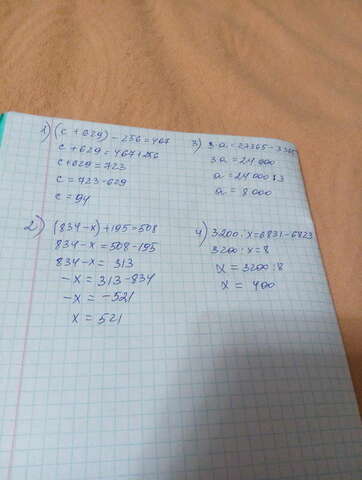 1) (c + 629) - 256 = 467
c + 629 = 467 + 256
c + 629 = 723
c = 723 - 629
c = 94
2) (834 - x) + 195 = 508
834 - x = 508 - 195
834 - x = 313
- x = 313 - 834
- x = - 521
x = 521
3) 3 a = 27365 -
3a = 24 000
a = 24 000 : 3
a = 8 000
4) 3200 : x = 6831 - 6823
3200 : x = 8
x = 3200 : 8
x = 400